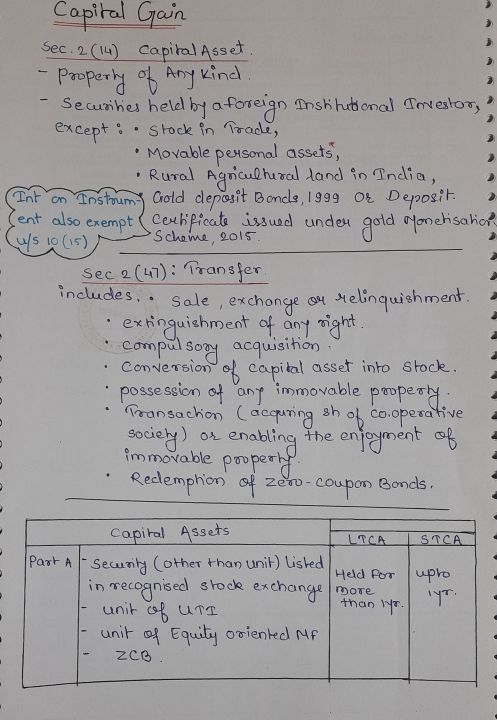 Capital Gain
Sec. 2(14) Capital Asset.
- Property of Any Kind.
- Securities held by a foreign Institutional Investor,
except : • Stock in Trade,
• Movable personal assets*,
• Rural Agricultural land in India,
• Gold deposit Bonds, 1999 Or Deposit
Certificate issued under gold Monetisation
Scheme, 2015.
Int on Instrum-
ent also exempt
u/s 10(15)
Sec 2(47): Transfer.
includes, • Sale, exchange or relinquishment.
• extinguishment of any right.
• Compulsory acquisition.
• Conversion of capital asset into stock.
• possession of any immovable property.
• Transaction (acquring sh of co.operative
society) or enabling the enjoyment of
immovable property.
• Redemption of Zero-coupon Bonds.
Capital Assets
LTCA
STCA
Part A
- Security (other than unit) Listed
in recognised stock exchange
- unit of UTI
- unit of Equity oriented MF
- ZCB.
Held for
more
than 1yr.
upto
1yr.